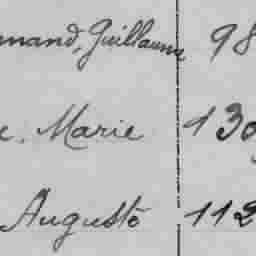 mand, Guillaume 98
e. Marie 130
Auguste 112